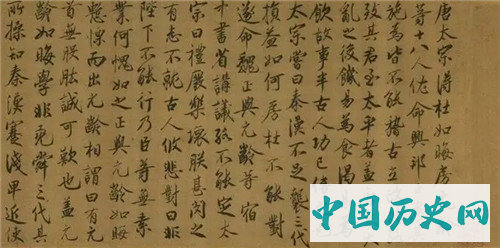 唐太宗得杜如晦房
等十八人佐命興邦
施為皆不能稽古立
致其君至太平者蓋
亂之後飢易為食渴
飲故事半古人功已
太宗嘗曰秦漢不足襲三代
損益如何房杜不能對
遂命魏正與元齡等宿
中書省講議終不能定太
宗曰禮廢樂壞朕甚閔之
有志不就古人攸悲對曰非
陛下不能行乃臣等無素
業何愧如之正與元齡如晦
慙慄而出元齡相謂曰有元
首無股肱誠可歎也蓋元
齡如晦學非堯舜三代其
所操知秦漢蹇淺卑近使
中国历史网